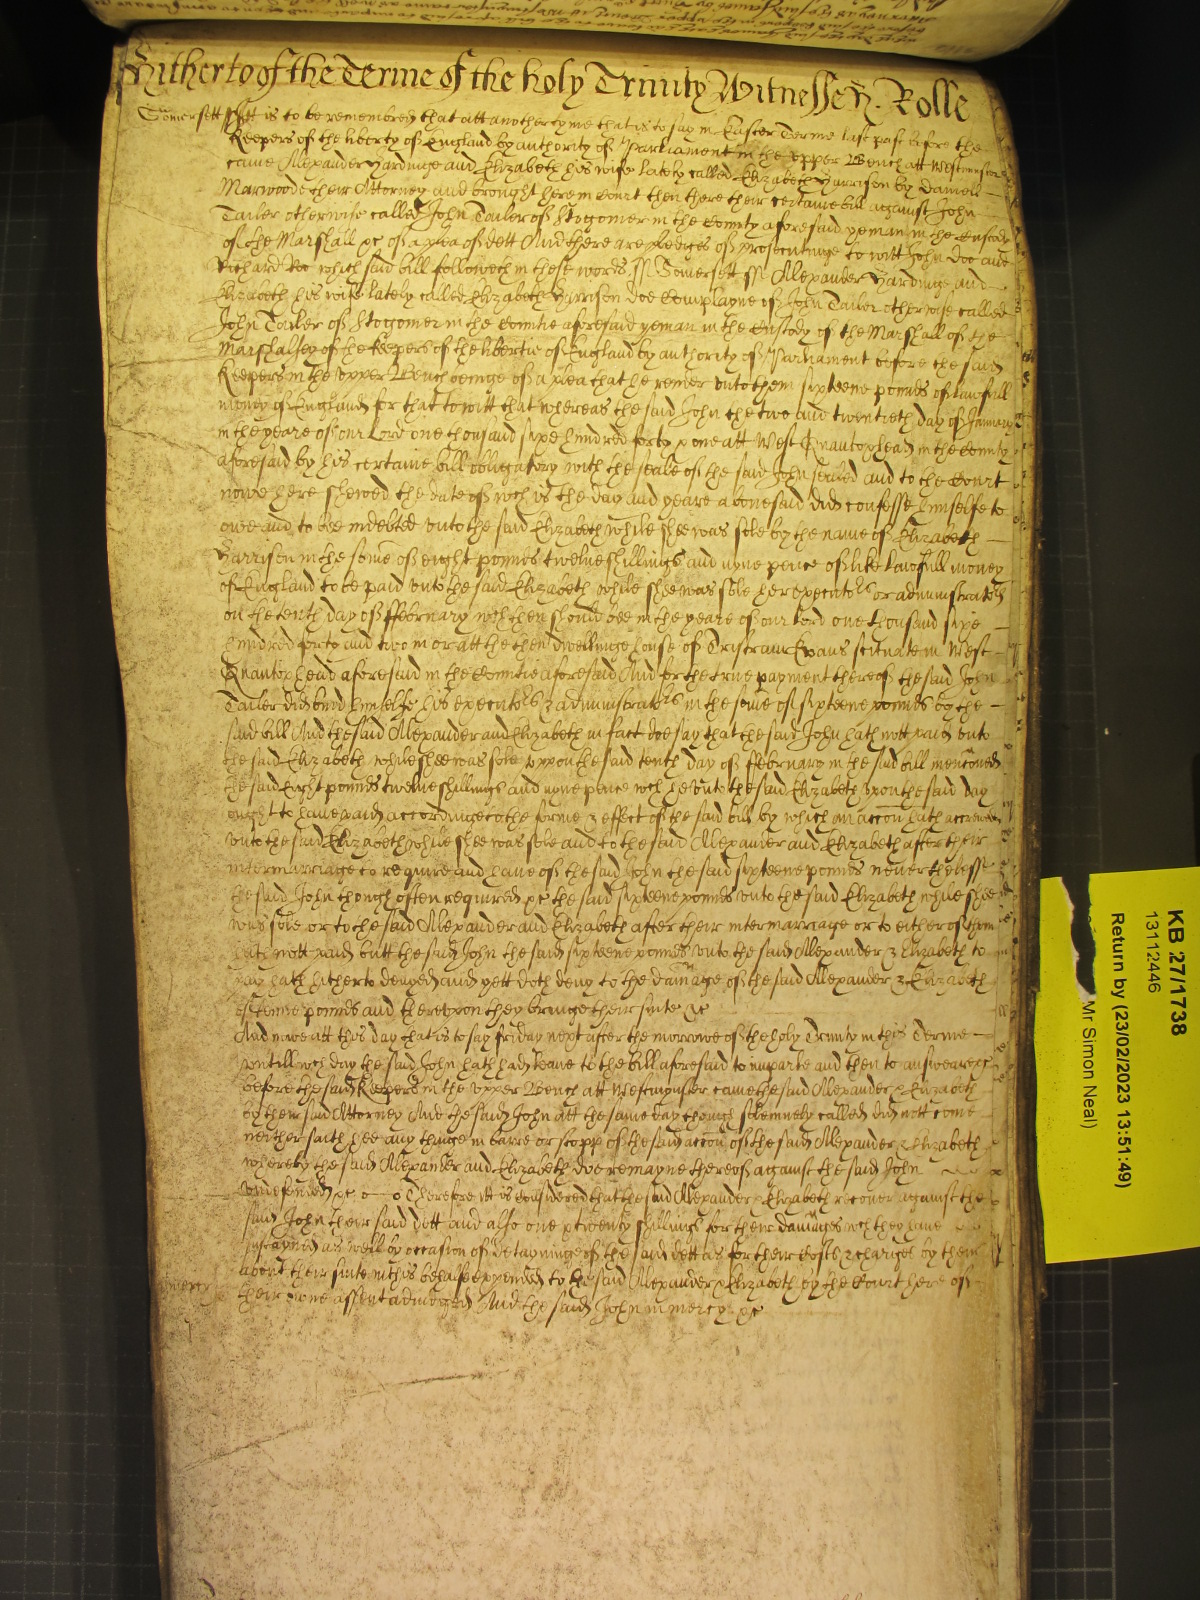 Hitherto of the Terme of the holy Trinity Witnesse H. Rolle
Somersett ss Itt is to be remembred that att another tyme that is to say in Easter Terme last past before the
Keepers of the liberty of England by authority of Parliament in the upper Bench att Westminster
came Alexander Hardinge and Elizabeth his wife lately called Elizabeth Harrison by Daniell
Marwoode their Attorney and brought here in Court then there their certaine bill against John
Tailer otherwise called John Tailer of Stogomer in the County aforesaid yeman in the Custody
of the Marshall &c of a plea of dett And there are pledges of prosecutinge to witt John Doe and
Richard Roo which said bill followeth in these words ss Somersett ss Alexander Hardinge and
Elizabeth his wife lately called Elizabeth Harrison doe complayne of John Tailer otherwise called
John Tailer of Stogomer in the Countie aforesaid yeman in the Custody of the Marshall of the
Marshalsey of the Keepers of the libertie of England by authority of Parliament before the said
Keepers in the upper Bench beinge of a plea that he render unto them sixteene pounds of lawfull
money of England for that to witt that whereas the said John the two and twentieth day of January
in the yeare of our Lord one thousand sixe hundred forty & one att West Quantoxhead in the County
aforesaid by his certaine bill obligatory with the seale of the said John sealed and to the Court
nowe here shewed the date of wch is the day and yeare abovesaid did confesse himselfe to
owe and to bee indebted unto the said Elizabeth while shee was sole by the name of Elizabeth
Harrison in the some of eight pounds twelve shillings and nyne pence of like lawfull money
of England to be paid unto the said Elizabeth while shee was sole her executors or administrators
on the tenth day of ffebruary wch then should bee in the yeare of our Lord one thousand sixe
hundred forty and two in or att the then dwellinge house of Tristram Evans scituate in West
Quantoxhead aforesaid in the Countie aforesaid And for the true payment thereof the said John
Tailer did bind himselfe his executors & administrators in the some of sixteene pounds by the
said bill And the said Alexander and Elizabeth in fact doe say that the said John hath nott paid unto
the said Elizabeth while shee was sole uppon the said tenth day of ffebruary in the said bill mencioned
the said Eight pounds twelve shillings and nyne pence wch he unto the said Elizabeth upon the said day
ought to have paid accordinge to the forme & effect of the said bill by which an accon hath accrewed
unto the said Elizabeth while shee was sole and to the said Alexander and Elizabeth after their
intermarriage to require and have of the said John the said sixteene pounds neverthelesse
the said John though often required &c the said sixteene pounds unto the said Elizabeth while shee
was sole or to the said Alexander and Elizabeth after their intermarriage or to either of them
hath nott paid butt the said John the said sixteene pounds unto the said Alexander & Elizabeth to
pay hath hitherto denyed and yett doth deny to the damage of the said Alexander & Elizabeth
of tenne pounds and thereupon they bringe their suite &c
And nowe att this day that is to say friday next after the morrowe of the holy Trinity in this Terme
untill wch day the said John hath had leave to the bill aforesaid to imparle and then to answeare &c
before the said Keepers in the upper Bench att Westminster came the said Alexander & Elizabeth
by their said Attorney And the said John att the same day though solemnely called did nott come
neither saith hee any thinge in barre or stopp of the said accon of the said Alexander & Elizabeth
whereby the said Alexander and Elizabeth doe remayne thereof against the said John
undefended &c Therefore itt is considered that the said Alexander & Elizabeth recover against the
said John their said dett and also one & twenty shillings for their damages wch they have
susteyned as well by occasion of detayninge of the said dett as for their costs & charges by them
about their suite in this behalfe expended to the said Alexander & Elizabeth by the Court here of
their owne assent adiudged And the said John in mercy &c
mercy
KB 27/1738
13112446
Return by (23/02/2023 13:51:49)
Mr Simon Neal)